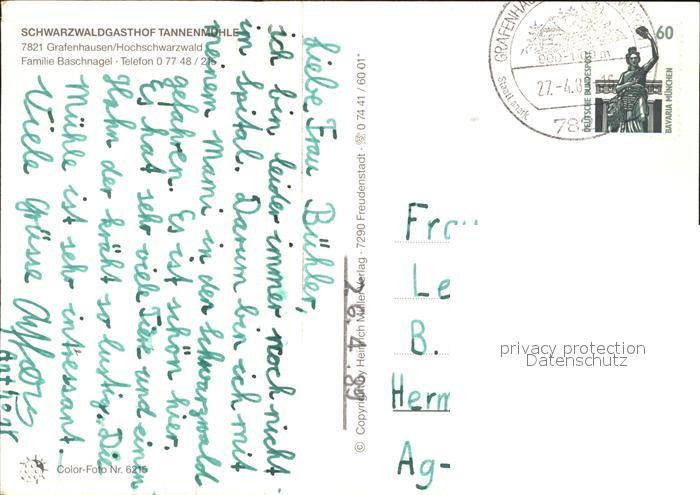 SCHWARZWALDGASTHOF TANNENMÜHLE
7821 Grafenhausen/Hochschwarzwald
Familie Baschnagel · Telefon 0 77 48 / 215
Liebe Frau Bühler,
ich bin leider immer noch nicht
im Spital. Darum bin ich mit
meinem Mami in den Schwarzwald
gefahren. Es ist schön hier.
Es hat sehr viele Tiere und einen
Hahn der kräht so lustig. Die
Mühle ist sehr intressant.
Viele Grüsse
Color-Foto Nr. 6215
© Copyright by Heinrich Müller Verlag · 7290 Freudenstadt · ☏ 0 74 41 / 60 01*
26.4.89
GRAFENHAUSEN
900-1100 m
27.-4.8
78
60
DEUTSCHE BUNDESPOST
BAVARIA MÜNCHEN
Fra
Le
B.
Herm
Ag-
privacy protection
Datenschutz